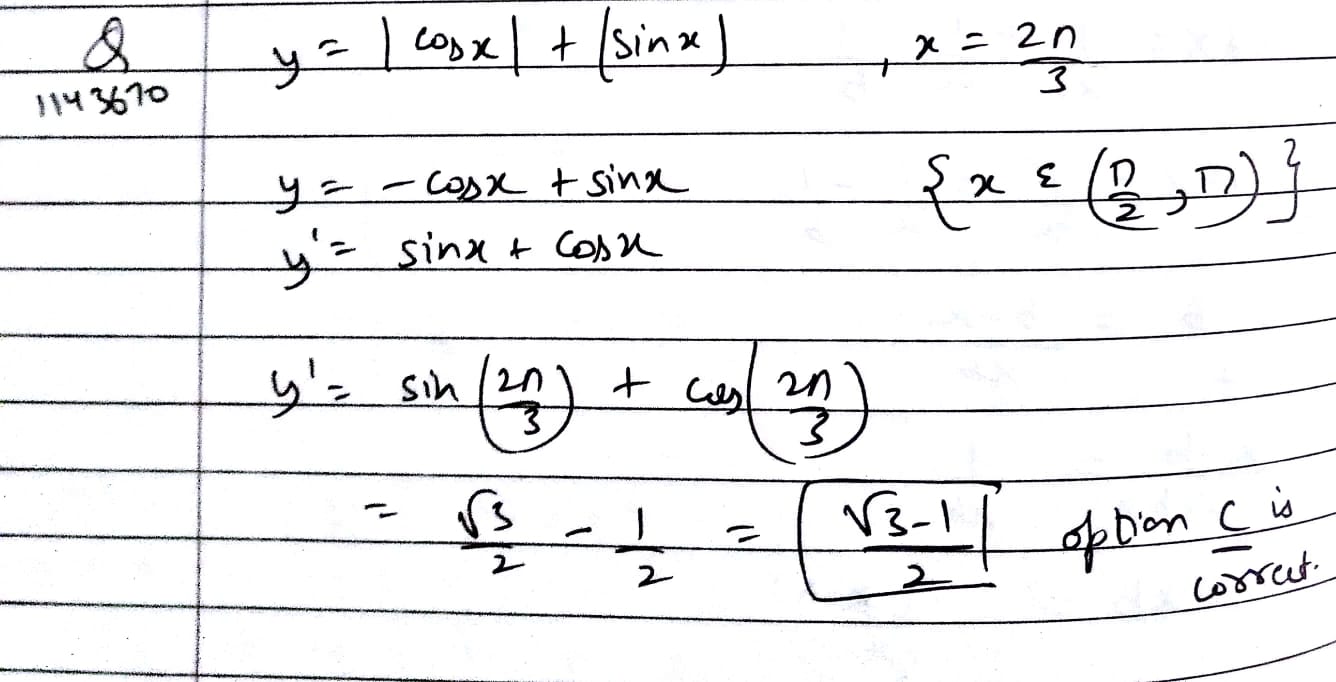 Q y = |cosx| + |sinx| , x = 2π/3
1143670
y = -cosx + sinx {x ε (π/2, π)}
y' = sinx + cosx
y' = sin(2π/3) + cos(2π/3)
= √3/2 - 1/2 = √3-1/2 option C is
correct.